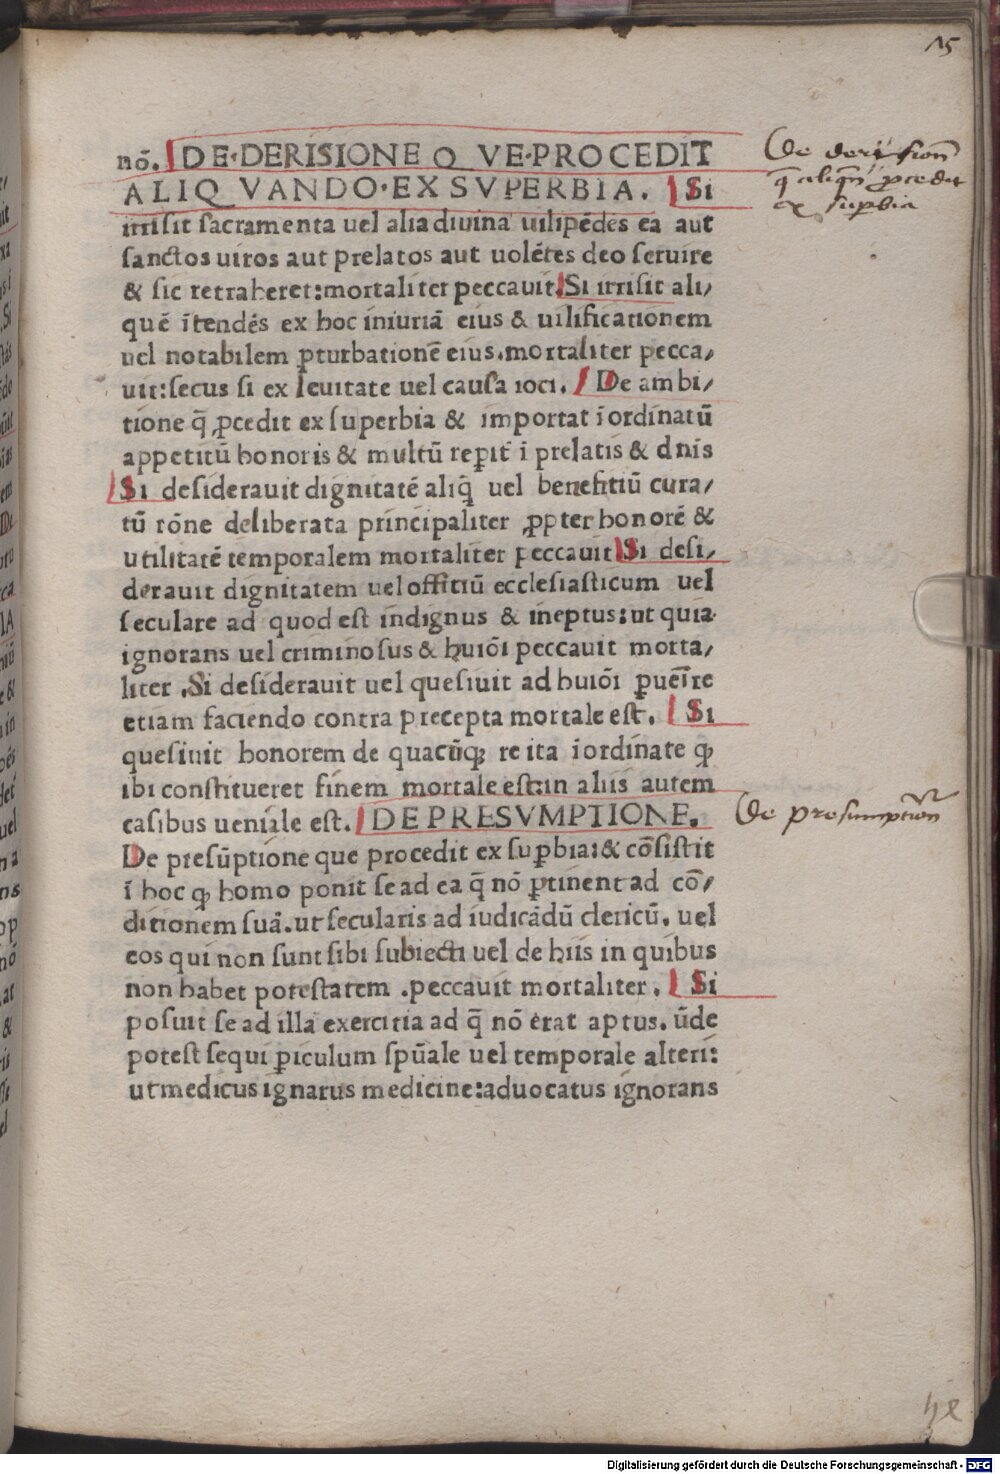 15
nō. DE·DERISIONE Q VE·PROCEDIT
ALIQ VANDO·EX SVPERBIA. Si
irrisit sacramenta uel alia diuina uilipēdēs ea aut
sanctos uiros aut prelatos aut uolētes deo seruire
& sic retraheret:mortaliter peccauit.Si irrisit ali/
quē ītendēs ex hoc iniuriā eius & uilificationem
uel notabilem ꝑturbationē eius.mortaliter pecca/
uit:secus si ex leuitate uel causa ioci. De ambi/
tione q̄ ꝓcedit ex superbia & importat īordinatū
appetitū honoris & multū reꝑit̄ i prelatis & dnis
Si desiderauit dignitatē aliq̄ uel benefitiū cura/
tū rōne deliberata principaliter ꝓpter honorē &
utilitatē temporalem mortaliter peccauit Si desi/
derauit dignitatem uel offitiū ecclesiasticum uel
seculare ad quod est indignus & ineptus:ut quia
ignorans uel criminosus & huiōi peccauit morta/
liter .Si desiderauit uel quesiuit ad huiōi ꝑueīre
etiam faciendo contra precepta mortale est. Si
quesiuit honorem de quacūqꝫ re ita īordinate ꝙ
ibi constitueret finem mortale est:in aliis autem
casibus ueniale est. DE PRESVMPTIONE.
De presūptione que procedit ex suꝑbia:& cōsistit
ī hoc ꝙ homo ponit se ad ea q̄ nō ꝑtinent ad cō/
ditionem suā.ut secularis ad iudicādū clericū. uel
eos qui non sunt sibi subiecti uel de hiis in quibus
non habet potestatem .peccauit mortaliter. Si
posuit se ad illa exercitia ad q̄ nō erat aptus. ūde
potest sequi ꝑiculum spūale uel temporale alteri:
ut medicus ignarus medicine:aduocatus ignorans
De derision
q̄ aliqn̄ ꝓcedit
ex suꝑbia
De presumption
Digitalisierung gefördert durch die Deutsche Forschungsgemeinschaft - DFG